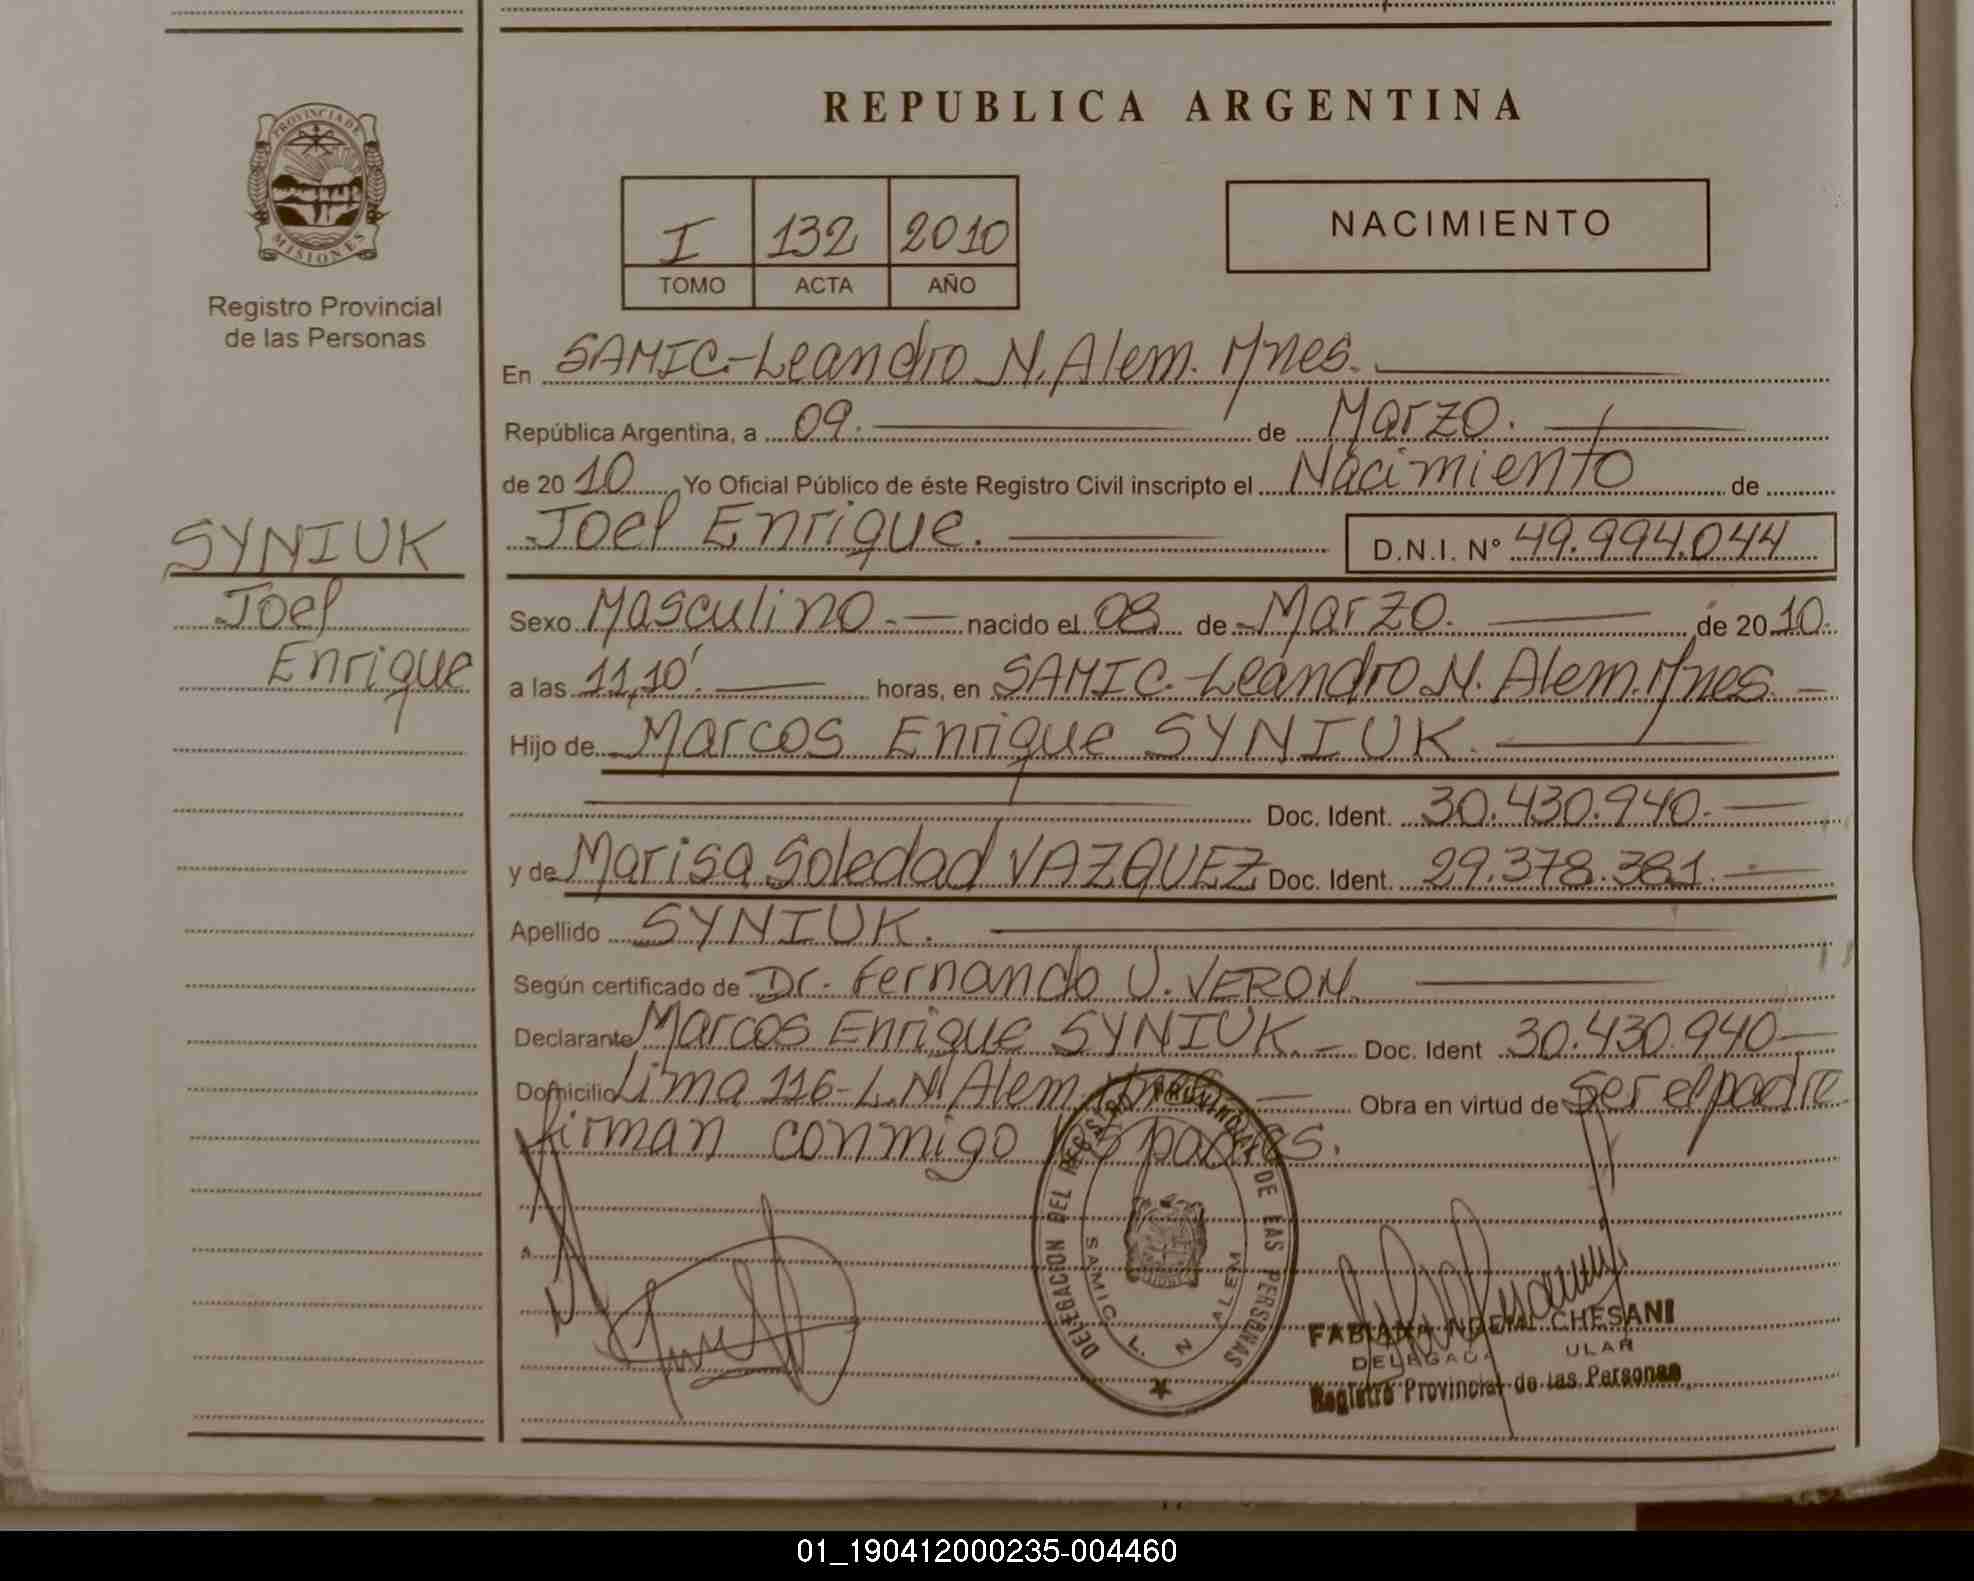 REPUBLICA ARGENTINA
PROVINCIA DE
MISIONES
Registro Provincial
de las Personas
I 132 2010
TOMO ACTA AÑO
NACIMIENTO
En SAMIC.-Leandro N. Alem. Mnes.
República Argentina, a 09. de Marzo.
de 20 10 Yo Oficial Público de éste Registro Civil inscripto el Nacimiento de
Joel Enrique. D.N.I. Nº 49.994.044
SYNIUK
Joel
Enrique
Sexo Masculino.- nacido el 08 de Marzo. de 20 10.
a las 11,10'. horas, en SAMIC.-Leandro N. Alem. Mnes.
Hijo de Marcos Enrique SYNIUK.
Doc. Ident. 30.430.940.-
y de Marisa Soledad VAZQUEZ Doc. Ident. 29.378.381.-
Apellido SYNIUK.
Según certificado de Dr. Fernando U. VERON.
Declarante Marcos Enrique SYNIUK.- Doc. Ident 30.430.940-
Domicilio Lima 116-L.N. Alem. Mnes. Obra en virtud de ser el padre
firman conmigo los padres.
DELEGACION DEL REGISTRO PROVINCIAL DE LAS PERSONAS
SAMIC L. N ALEM
FABIANA NOEMI CHESANI
Registro Provincial de las Personas
01_190412000235-004460